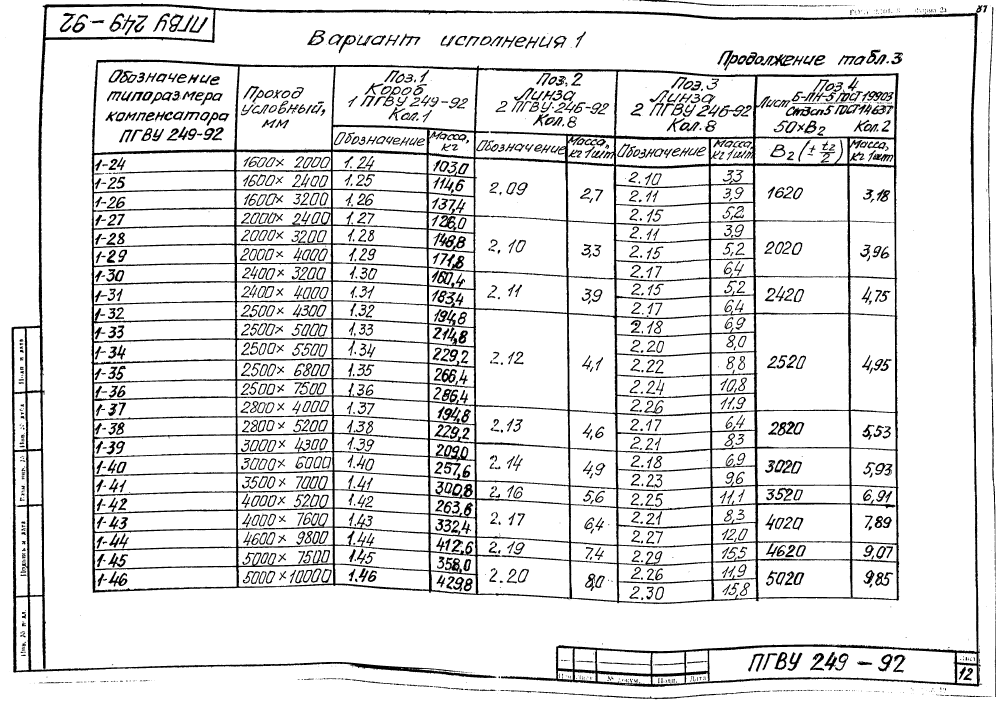 81
ПГВУ 249-92
Вариант исполнения 1
Продолжение табл.3
Обозначение типоразмера компенсатора ПГВУ 249-92
Проход условный, мм
Поз.1 Короб 1 ПГВУ 249-92 Кол.1
Поз.2 Линза 2 ПГВУ 24Б-92 Кол.8
Поз.3 Линза 2 ПГВУ 24Б-92 Кол.8
Поз.4 Лист Б-ПН-5 ГОСТ 19903 Ст3сп5 ГОСТ 14637 50×В2 Кол.2
Обозначение Масса, кг Обозначение Масса, кг 1шт Обозначение Масса, кг 1шт В2 (± t2/2) Масса, кг 1шт
1-24 1600×2000 1.24 103,0
1-25 1600×2400 1.25 114,6
1-26 1600×3200 1.26 137,4
2.09 2,7
2.10 3,3
2.11 3,9
2.15 5,2
1620 3,18
1-27 2000×2400 1.27 126,0
1-28 2000×3200 1.28 148,8
1-29 2000×4000 1.29 171,8
2.10 3,3
2.11 3,9
2.15 5,2
2.17 6,4
2020 3,96
1-30 2400×3200 1.30 160,4
1-31 2400×4000 1.31 183,4
2.11 3,9
2.15 5,2
2.17 6,4
2420 4,75
1-32 2500×4300 1.32 194,8
1-33 2500×5000 1.33 214,8
1-34 2500×5500 1.34 229,2
1-35 2500×6800 1.35 266,4
1-36 2500×7500 1.36 286,4
2.12 4,1
2.18 6,9
2.20 8,0
2.22 8,8
2.24 10,8
2.26 11,9
2520 4,95
1-37 2800×4000 1.37 194,8
1-38 2800×5200 1.38 229,2
2.13 4,6
2.17 6,4
2.21 8,3
2820 5,53
1-39 3000×4300 1.39 209,0
1-40 3000×6000 1.40 257,6
2.14 4,9
2.18 6,9
2.23 9,6
3020 5,93
1-41 3500×7000 1.41 300,8 2.16 5,6 2.25 11,1 3520 6,91
1-42 4000×5200 1.42 263,8
1-43 4000×7600 1.43 332,4
2.17 6,4
2.21 8,3
2.27 12,0
4020 7,89
1-44 4600×9800 1.44 412,6 2.19 7,4 2.29 15,5 4620 9,07
1-45 5000×7500 1.45 358,0
1-46 5000×10000 1.46 429,8
2.20 8,0
2.26 11,9
2.30 15,8
5020 9,85
Изм Лист № докум. Подп. Дата
ПГВУ 249-92
Лист
12